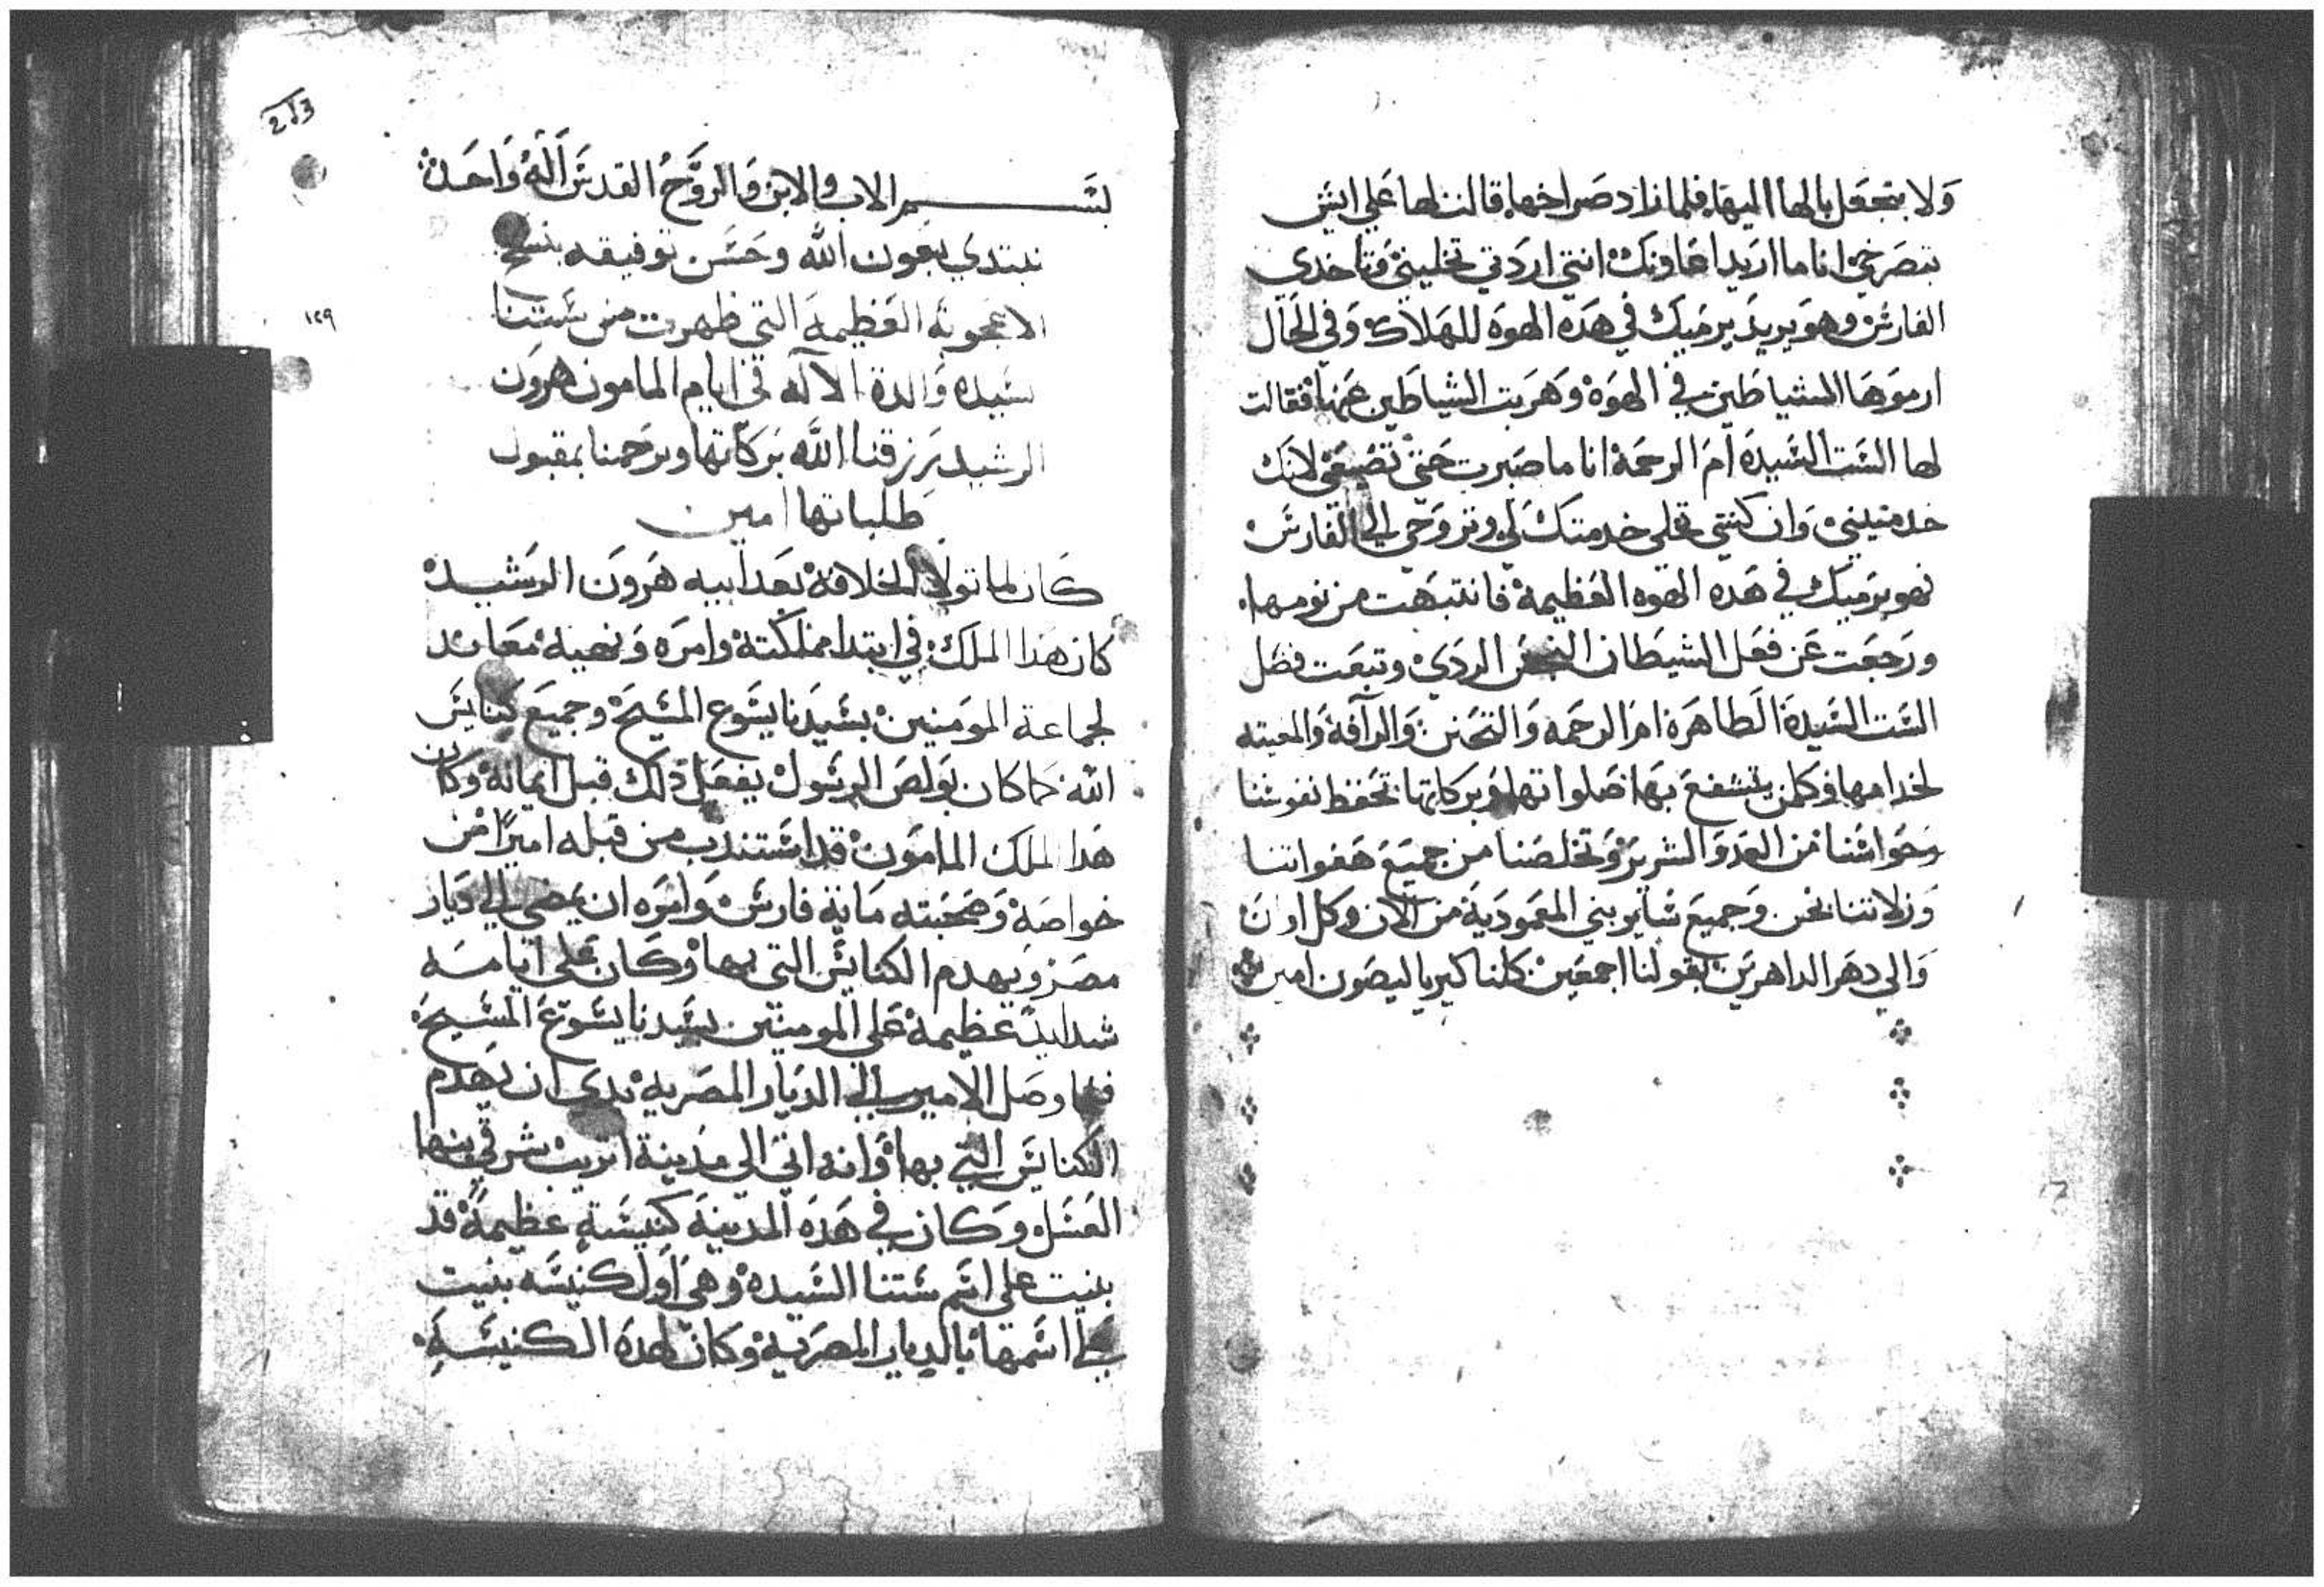 ولا بتجعل بالها اليها فلما زاد صراخها قالت لها علي ايش
بتصرخي انا ما اريد اعاونك انتي اردتي تخليني وتاخدي
الفارس وهو يريد يرميك في هده الهوه للهلاك وفي الحال
ارموها الشياطين في الهوة وهربت الشياطين عنها فقالت
لها الست السيدة ام الرحمة انا ما صبرت حتي تضيعي لانك
خدمتيني وان كنتي تخلي خدمتك لي وتروحي الي الفارس
فهو يرميك في هده الهوه العظيمة فانتبهت من نومها
ورجعت عن فعل الشيطان النجس الردي وتبعت فضل
الست السيدة الطاهرة ام الرحمه والتحنن والرآفة والمعينه
لخدامها وكلمن يتشفع بها صلواتها وبركاتها تحفظ نفوسنا
وحواسنا من العدو الشرير وتخلصنا من جميع هفواتنا
وزلاتنا نحن وجميع ساير بني المعمودية من الآن وكل اوان
والي دهر الداهرين بقولنا اجمعين كلنا كيرياليصون امين
2013
١٢٩
بسم الاب والابن والروح القدس آله واحد
نبتدي بعون الله وحسن توفيقه بنسخ
الاعجوبة العظيمة التي ظهرت من ستنا
سيده والدة الآله في ايام المامون هرون
الرشيد يرزقنا الله بركاتها ويرحمنا بمقبول
طلباتها امين
كان لما تولا الخلافة بعد ابيه هرون الرشيد
كان هدا الملك في ابتدا مملكته وامره ونهيه معاند
لجماعة المومنين بسيدنا يسوع المسيح وجميع كنايس
الله كما كان بولص الرسول يفعل دلك قبل ايمانه وكان
هدا الملك المامون قد استندب من قبله اميرًا من
خواصه وصحبته ماية فارس وامره ان يمضي الي ديار
مصر ويهدم الكنايس التي بها وكان علي ايامه
شدايد عظيمة علي المومنين بسيدنا يسوع المسيح
فلما وصل الامير الي الديار المصرية بدي ان يهدم
الكنايس التي بها وانه اتي الي مدينة اتريب شرقي بنها
العسل وكان في هده المدينة كنيسة عظيمة قد
بنيت علي اسم ستنا السيده وهي اول كنيسه بنيت
علي اسمها بالديار المصرية وكان لهده الكنيسة